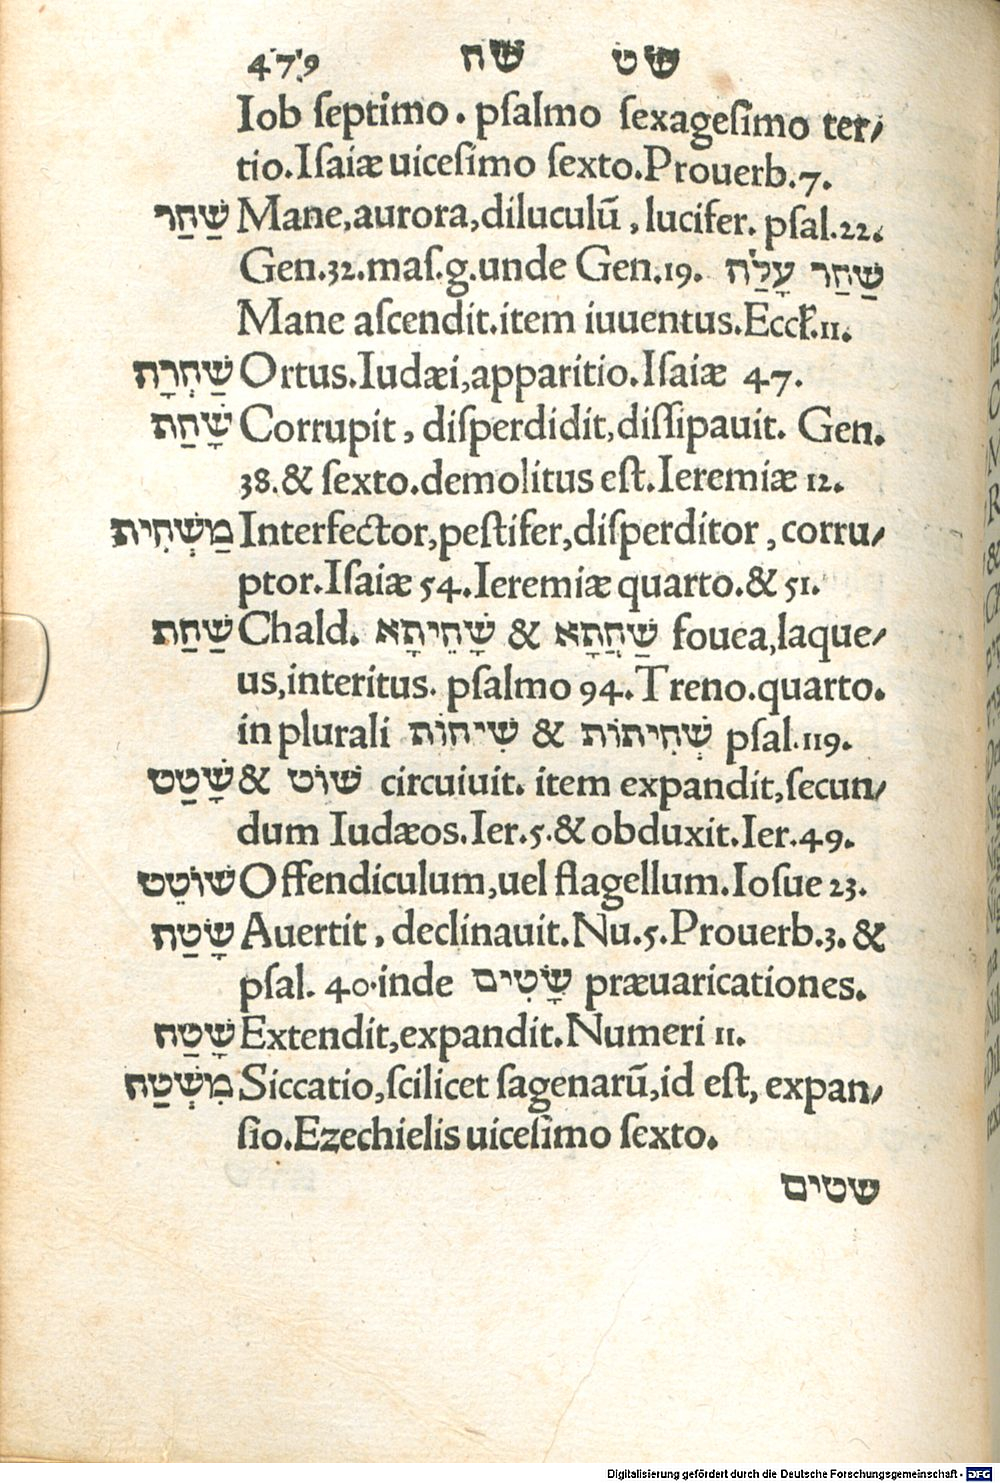 479 שח שט
Iob ſeptimo. pſalmo ſexageſimo ter/
tio. Iſaiæ uiceſimo ſexto. Prouerb. 7.
שַׁחַר Mane, aurora, diluculū, lucifer. pſal. 22.
Gen. 32. maſ. g. unde Gen. 19. שַׁחַר עָלַה
Mane aſcendit. item iuuentus. Eccł. 11.
שַׁחְרָה Ortus. Iudæi, apparitio. Iſaiæ 47.
שָׁחַת Corrupit, diſperdidit, diſſipauit. Gen.
38. & ſexto. demolitus eſt. Ieremiæ 12.
מַשְׁחִית Interfector, peſtifer, diſperditor, corru/
ptor. Iſaiæ 54. Ieremiæ quarto. & 51.
שַׁחַת Chald. שָׁחֵיתָא & שַׁחֲתָא fouea, laque/
us, interitus. pſalmo 94. Treno. quarto.
in plurali שִׁיחוֹת & שְׁחִיתוֹת pſal. 119.
שָׁטַט & שׁוֹט circuiuit. item expandit, ſecun/
dum Iudæos. Ier. 5. & obduxit. Ier. 49.
שׁוֹטֵט Offendiculum, uel flagellum. Ioſue 23.
שָׂטַה Auertit, declinauit. Nu. 5. Prouerb. 3. &
pſal. 40. inde שָׂטִים præuaricationes.
שָׁטַח Extendit, expandit. Numeri 11.
מִשְׁטַח Siccatio, ſcilicet ſagenarū, id eſt, expan/
ſio. Ezechielis uiceſimo ſexto.
שטים
Digitalisierung gefördert durch die Deutsche Forschungsgemeinschaft - DFG